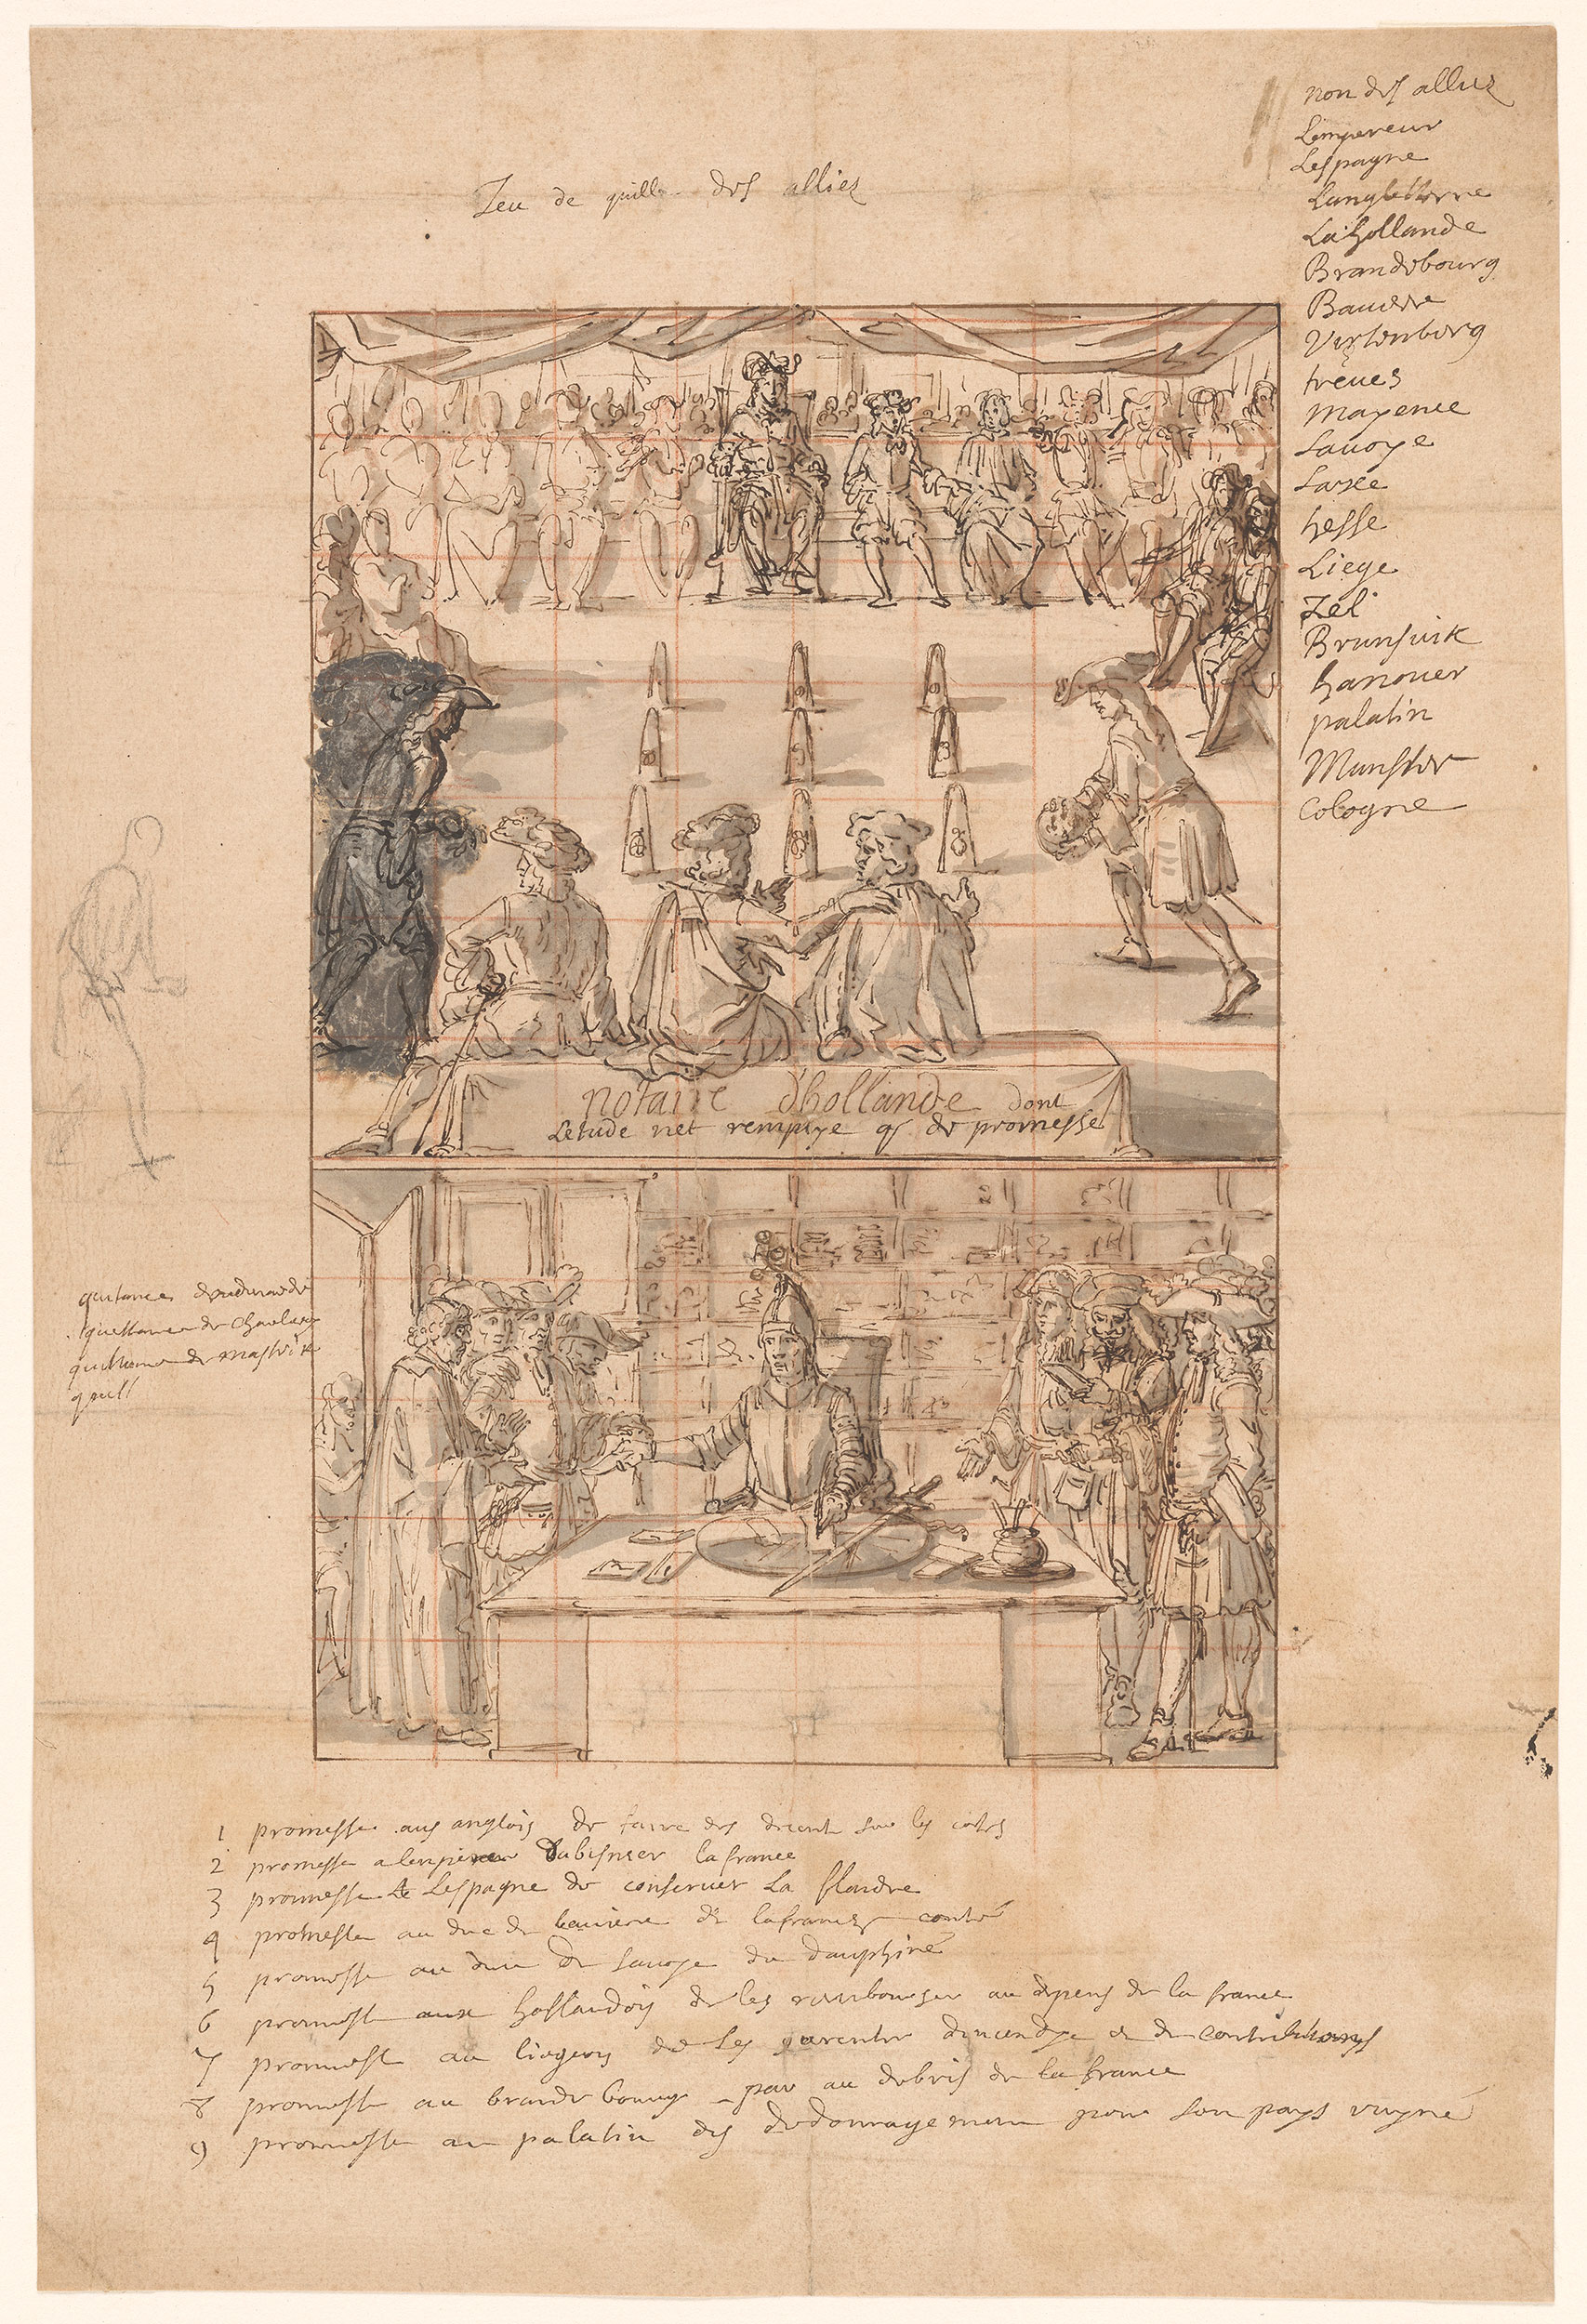 Jeu de quille des alliez
non des alliez
Lempereur
Lespagne
Langletterre
La hollande
Brandebourg
Baviere
Virtenberg
treues
Mayence
Sauoye
Saxee
hesse
Liege
Zel
Brunsuik
hanouer
palatin
Munster
Cologne
notaire d'hollande dont
Letude net remplye q de promesse
quitance
quittance de charleroy
quittance de mastrik
quitt
1 promesse aux anglois de faire des decente sur les costes
2 promesse a lempereur dabismer la france
3 promesse de Lespagne de conseruer La flandre
4 promesse au duc de bauiere de la franche conté
5 promesse au duc de sauoye du dauphiné
6 promesse aux hollandois de les rembourser au depens de la france
7 promesse au liegeois de les garentir dincendye et de contributions
8 promesse au brandebourg par au debris de la france
9 promesse au palatin des dedomagement pour son pays ruyné